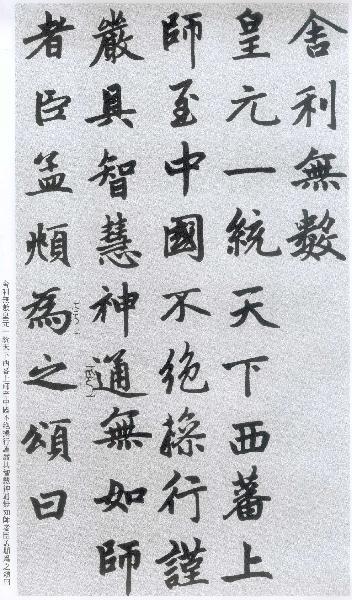 舎利無數
皇元一統天下西蕃上
師至中國不絶操行謹
嚴具智慧神通無如師
者臣孟頫為之頌曰
舎利無數皇元一統天下西蕃上師至中國不絶操行謹嚴具智慧神通無如師者臣孟頫為之頌曰